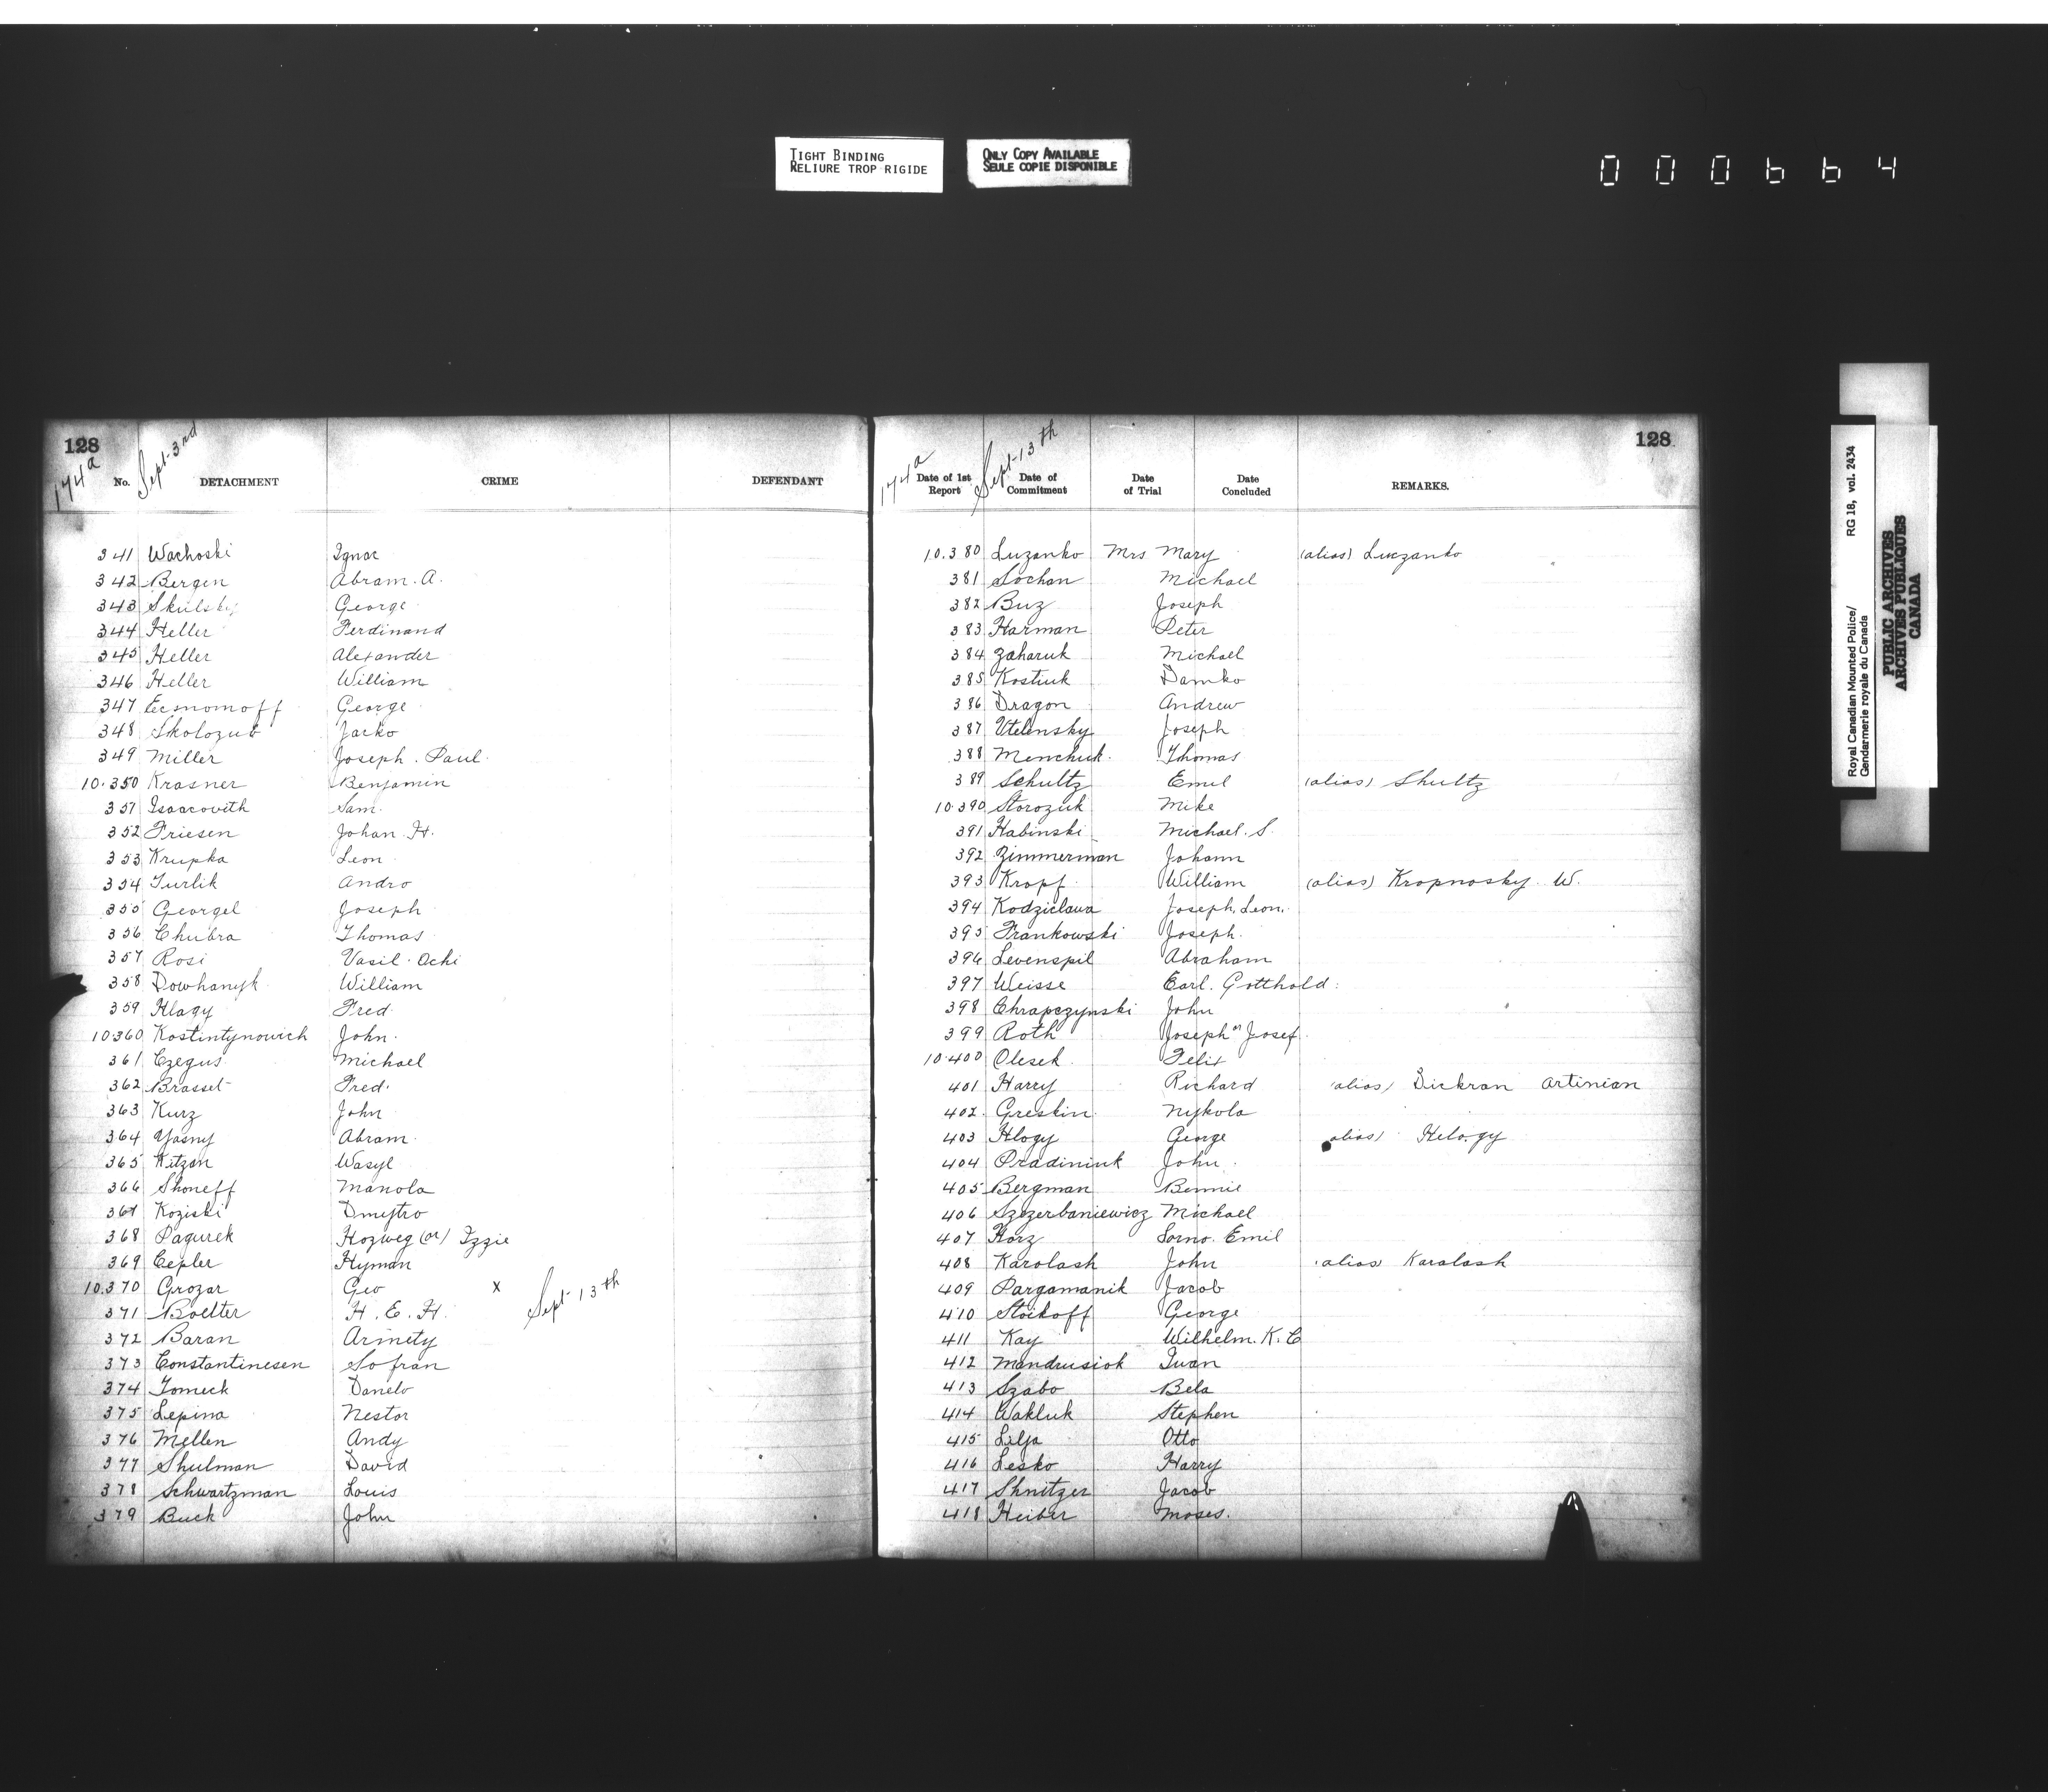 TIGHT BINDING
RELIURE TROP RIGIDE
ONLY COPY AVAILABLE
SEULE COPIE DISPONIBLE
000664
128
174a
Sept. 3rd
No. DETACHMENT CRIME DEFENDANT
341 Wachoski Ignac
342 Bergen Abram. A.
343 Skulsky George
344 Heller Ferdinand
345 Heller Alexander
346 Heller William
347 Economoff George
348 Skolozub Jacko
349 Miller Joseph. Paul.
10.350 Krasner Benjamin
351 Isaacovith Sam.
352 Friesen Johan. H.
353 Krupka Leon
354 Turlik Andro
355 Georgel Joseph
356 Chubra Thomas
357 Rosi Vasil. Ochi
358 Dowhanyk William
359 Hlagy Fred.
10.360 Kostintynowich John.
361 Czegus Michael
362 Brasset Fred.
363 Kurz John
364 Yasny Abram
365 Kitzan Wasyl
366 Shoneff Manola
367 Koziski Dmytro
368 Pagurek Hozweg (or) Izzie
369 Cepler Hyman
10.370 Grozar Geo x Sept. 13th
371 Boelter H. E. H.
372 Baran Armety
373 Constantinesen Sofran
374 Tomeck Danelo
375 Lepina Nestor
376 Mellen Andy
377 Shulman David
378 Schwartzman Louis
379 Buck John
128
174a
Sept. 13th
Date of 1st Report Date of Commitment Date of Trial Date Concluded REMARKS.
10.380 Luzanko Mrs Mary (alias) Luczanko
381 Sochan Michael
382 Buz Joseph
383 Harman Peter
384 Zaharuk Michael
385 Kostiuk Damko
386 Dragon Andrew
387 Utelensky Joseph
388 Menchuk. Thomas
389 Schultz Emil (alias) Shultz
10.390 Storozuk Mike
391 Habinski Michael. S.
392 Zimmerman Johann
393 Kropf William (alias) Kropnosky. W.
394 Kodziclawa Joseph. Leon.
395 Frankowski Joseph.
396 Levenspil Abraham
397 Weisse Earl. Gotthold.
398 Chrapczynski John
399 Roth Joseph or Josef.
10.400 Olesek Felix
401 Harry Richard (alias) Dickran Artinian
402. Greskin Nykola
403 Hlogy George (alias) Helogy
404 Pradiniuk John.
405 Bergman Bennie
406 Szczerbaniewicz Michael
407 Horz Sorno. Emil
408 Karolash John (alias) Karalash
409 Pargamanik Jacob
410 Stoikoff George
411 Kay Wilhelm. K. C
412 Mandrusiak Iwan
413 Szabo Bela
414 Wakluk Stephen
415 Lilja Otto
416 Lesko Harry
417 Shnitzer Jacob
418 Heiber Moses.
Royal Canadian Mounted Police/ RG 18, vol. 2434
Gendarmerie royale du Canada
PUBLIC ARCHIVES
ARCHIVES PUBLIQUES
CANADA